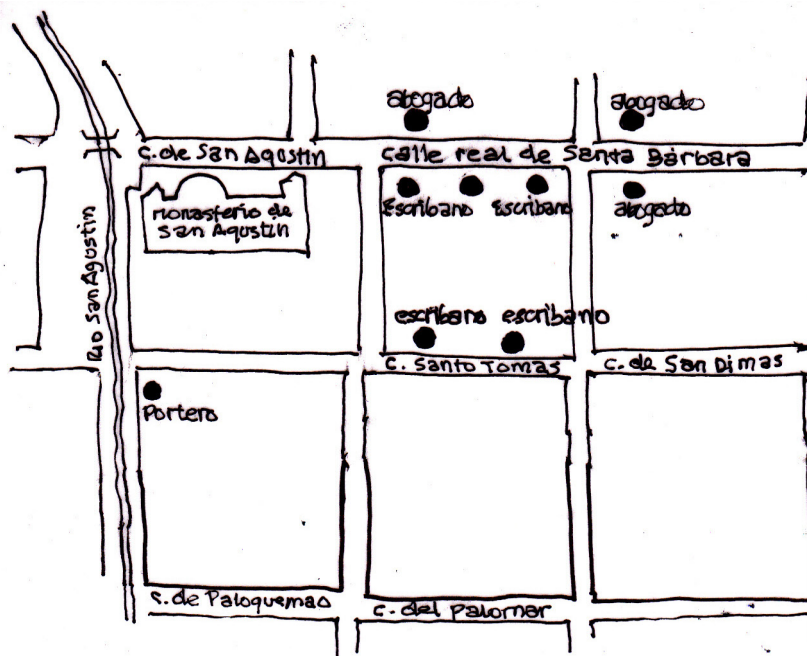 abogado
abogado
c. de San Agustin
calle real de Santa Bárbara
monasterio de
san Agustin
Escribano
escribano
abogado
Rio San Agustin
escribano
escribano
c. Santo Tomas
c. de San Dimas
Portero
c. de Paloquemao
c. del Palomar